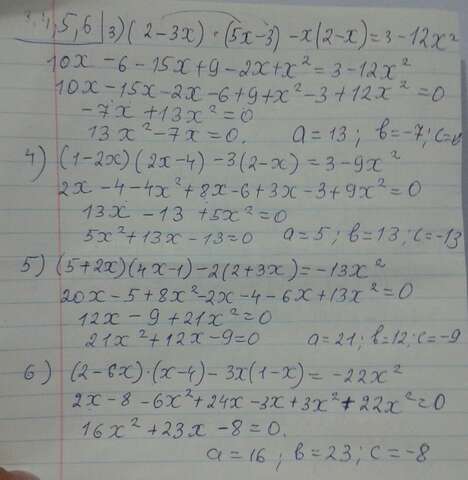 3,4,5,6 3) (2-3x)·(5x-3)-x(2-x)=3-12x²
10x-6-15x+9-2x+x²=3-12x²
10x-15x-2x-6+9+x²-3+12x²=0
-7x+13x²=0
13x²-7x=0. a=13; b=-7; c=0
4) (1-2x)(2x-4)-3(2-x)=3-9x²
2x-4-4x²+8x-6+3x-3+9x²=0
13x-13+5x²=0
5x²+13x-13=0 a=5; b=13; c=-13
5) (5+2x)(4x-1)-2(2+3x)=-13x²
20x-5+8x²-2x-4-6x+13x²=0
12x-9+21x²=0
21x²+12x-9=0 a=21; b=12; c=-9
6) (2-6x)·(x-4)-3x(1-x)=-22x²
2x-8-6x²+24x-3x+3x²+22x²=0
16x²+23x-8=0.
a=16; b=23; c=-8